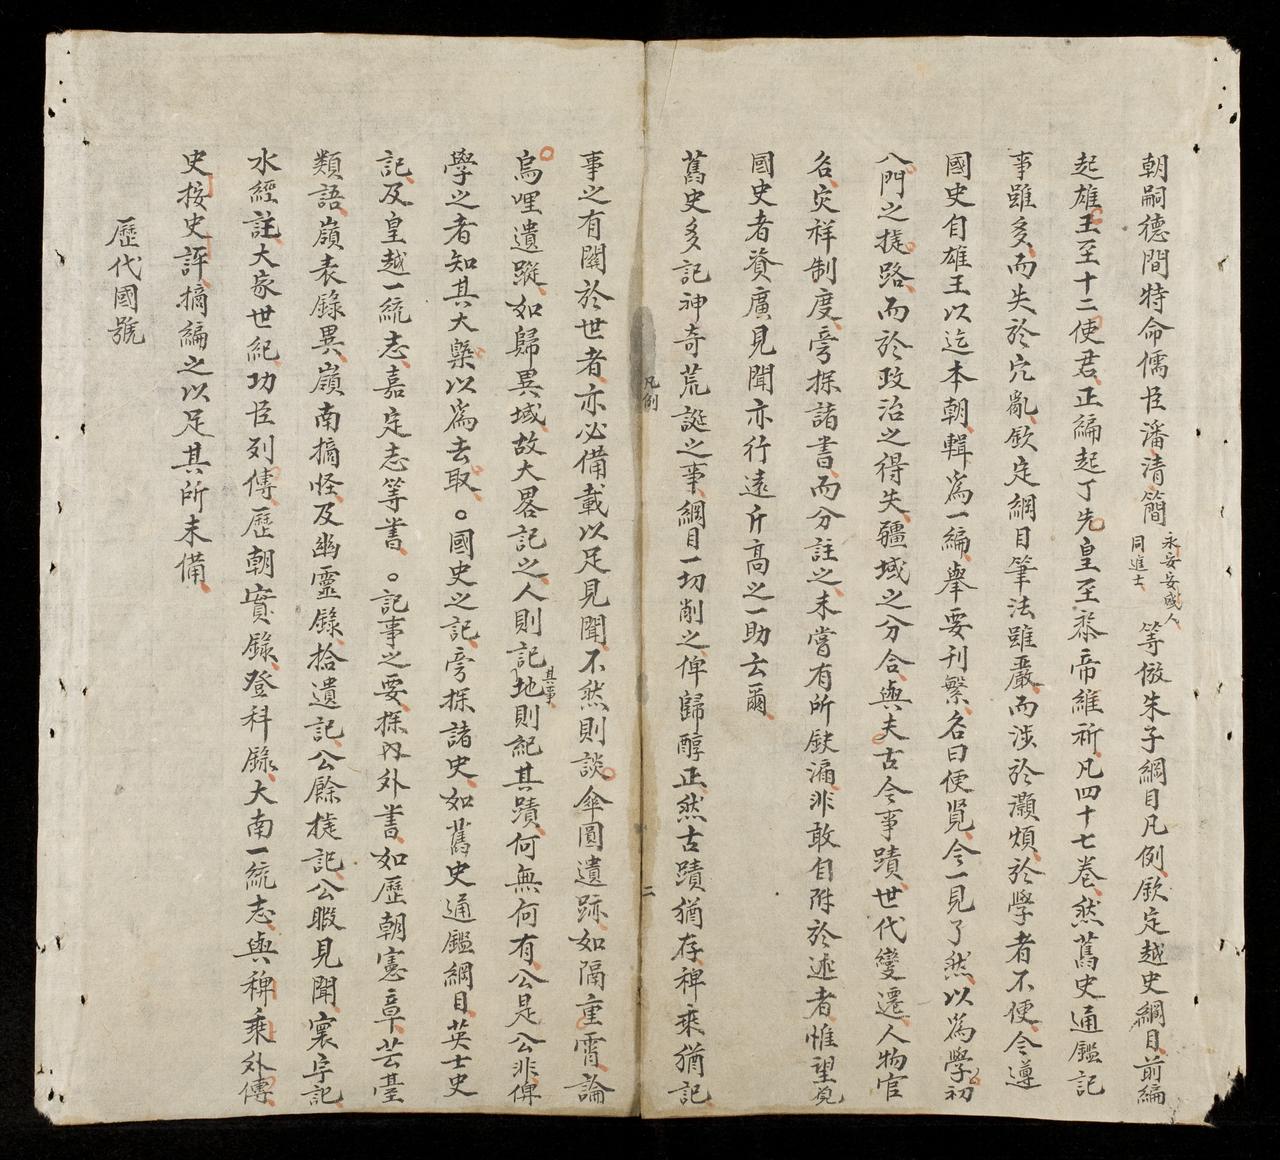 朝嗣德間特命儒臣潘清簡永安安盛人同進士等倣朱子綱目凡例欽定越史綱目前編
起雄王至十二使君正編起丁先皇至黎帝維祈凡四十七卷然舊史通鑑記
事雖多而失於冗亂欽定綱目筆法雖嚴而涉於灝煩於學者不便今遵
國史自雄王以迄本朝輯爲一編舉要刊繁名曰便覽令一見了然以爲學初
入門之捷路而於政治之得失疆域之分合與夫古今事蹟世代變遷人物官
名灾祥制度旁採諸書而分註之未嘗有所缺漏非敢自附於述者惟望覽
國史者資廣見聞亦行遠升高之一助云爾
舊史多記神奇荒誕之事綱目一切削之俾歸醇正然古蹟猶存稗乘猶記
凡例
二
事之有關於世者亦必備載以足見聞不然則談傘圓遺跡如隔重霄論
烏哩遺蹤如歸異域故大畧記之人則記其事地則紀其蹟何無何有公是公非俾
學之者知其大槩以爲去取○國史之記旁採諸史如舊史通鑑綱目英士史
記及皇越一統志嘉定志等書○記事之要採內外書如歷朝憲章芸臺
類語嶺表錄異嶺南摘怪及幽靈錄拾遺記公餘捷記公暇見聞寰宇記
水經註大家世紀功臣列傳歷朝實錄登科錄大南一統志與稗乘外傳
史按史評摘編之以足其所未備
歷代國號